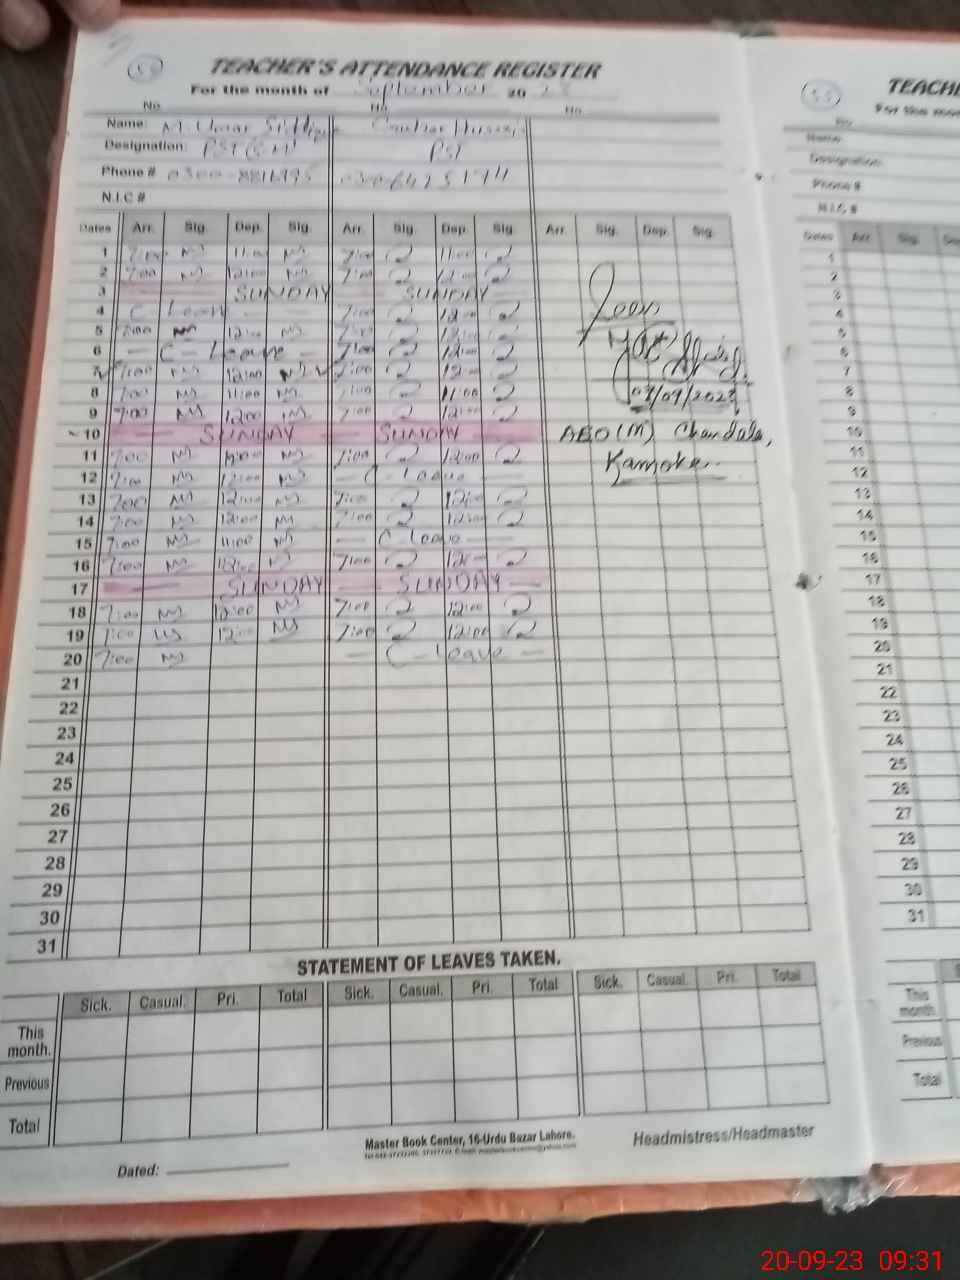 55
TEACHER'S ATTENDANCE REGISTER
For the month of September 20 23
No. No. No.
Name: M. Umar Siddiq
Designation: PST PST
Phone #
N.I.C #
Dates Arr. Sig. Dep. Sig. Arr. Sig. Dep. Sig. Arr. Sig. Dep. Sig.
1 7:00 11:00 7:00 11:00
2 7:00 12:00 7:00 12:00
3 SUNDAY SUNDAY
4 C Leave 7:00 12:00
5 7:00 12:00 7:00 12:00
6 — C - Leave — 7:00 12:00
7 7:00 12:00 7:00 12:00
8 7:00 11:00 7:00 11:00
9 7:00 12:00 7:00 12:00
10 — SUNDAY — SUNDAY —
11 7:00 7:00 12:00
12 7:00 12:00 — C - Leave —
13 7:00 12:00 7:00 12:00
14 7:00 12:00 7:00 12:00
15 7:00 11:00 — C leave —
16 7:00 12:00 7:00 12:00
17 — SUNDAY — SUNDAY —
18 7:00 12:00 7:00 12:00
19 7:00 12:00 7:00 12:00
20 7:00 — C - leave —
21
22
23
24
25
26
27
28
29
30
31
Seen
07/09/2023
AEO (M) Chandala,
Kamoke
STATEMENT OF LEAVES TAKEN.
Sick. Casual. Pri. Total Sick. Casual. Pri. Total Sick. Casual. Pri. Total
This month.
Previous
Total
Master Book Center, 16-Urdu Bazar Lahore.
Headmistress/Headmaster
Dated:
55
TEACHE
For the mon
No.
Name:
Designation:
Phone #
N.I.C #
Dates Arr. Sig. De
1
2
3
4
5
6
7
8
9
10
11
12
13
14
15
16
17
18
19
20
21
22
23
24
25
26
27
28
29
30
31
S
This month.
Previous
Total
20-09-23 09:31